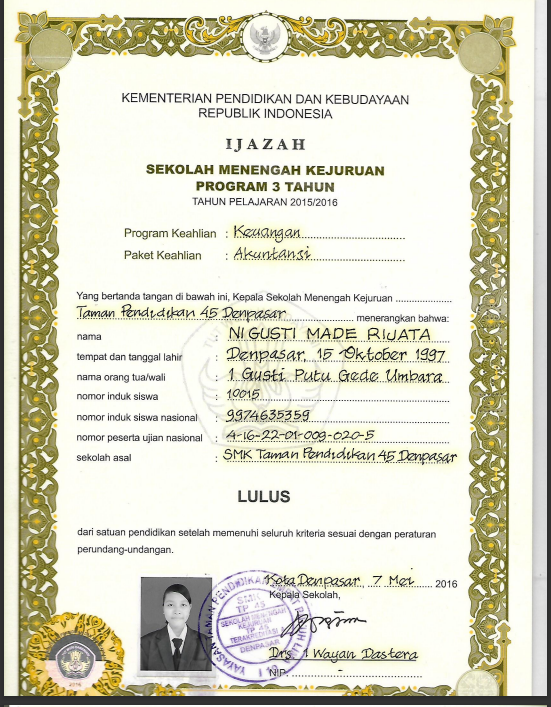 KEMENTERIAN PENDIDIKAN DAN KEBUDAYAAN
REPUBLIK INDONESIA
IJAZAH
SEKOLAH MENENGAH KEJURUAN
PROGRAM 3 TAHUN
TAHUN PELAJARAN 2015/2016
Program Keahlian : Keuangan
Paket Keahlian : Akuntansi
Yang bertanda tangan di bawah ini, Kepala Sekolah Menengah Kejuruan
Taman Pendidikan 45 Denpasar menerangkan bahwa:
nama : NI GUSTI MADE RIJATA
tempat dan tanggal lahir : Denpasar, 15 Oktober 1997
nama orang tua/wali : I Gusti Putu Gede Umbara
nomor induk siswa : 10015
nomor induk siswa nasional : 9974635359
nomor peserta ujian nasional : 4-16-22-01-009-020-5
sekolah asal : SMK Taman Pendidikan 45 Denpasar
LULUS
dari satuan pendidikan setelah memenuhi seluruh kriteria sesuai dengan peraturan
perundang-undangan.
Kota Denpasar, 7 Mei 2016
Kepala Sekolah,
SMK
TP 45
SEKOLAH MENENGAH
KEJURUAN
TP 45
TERAKREDITASI
DENPASAR
Drs. I Wayan Dastera
NIP. -
2016